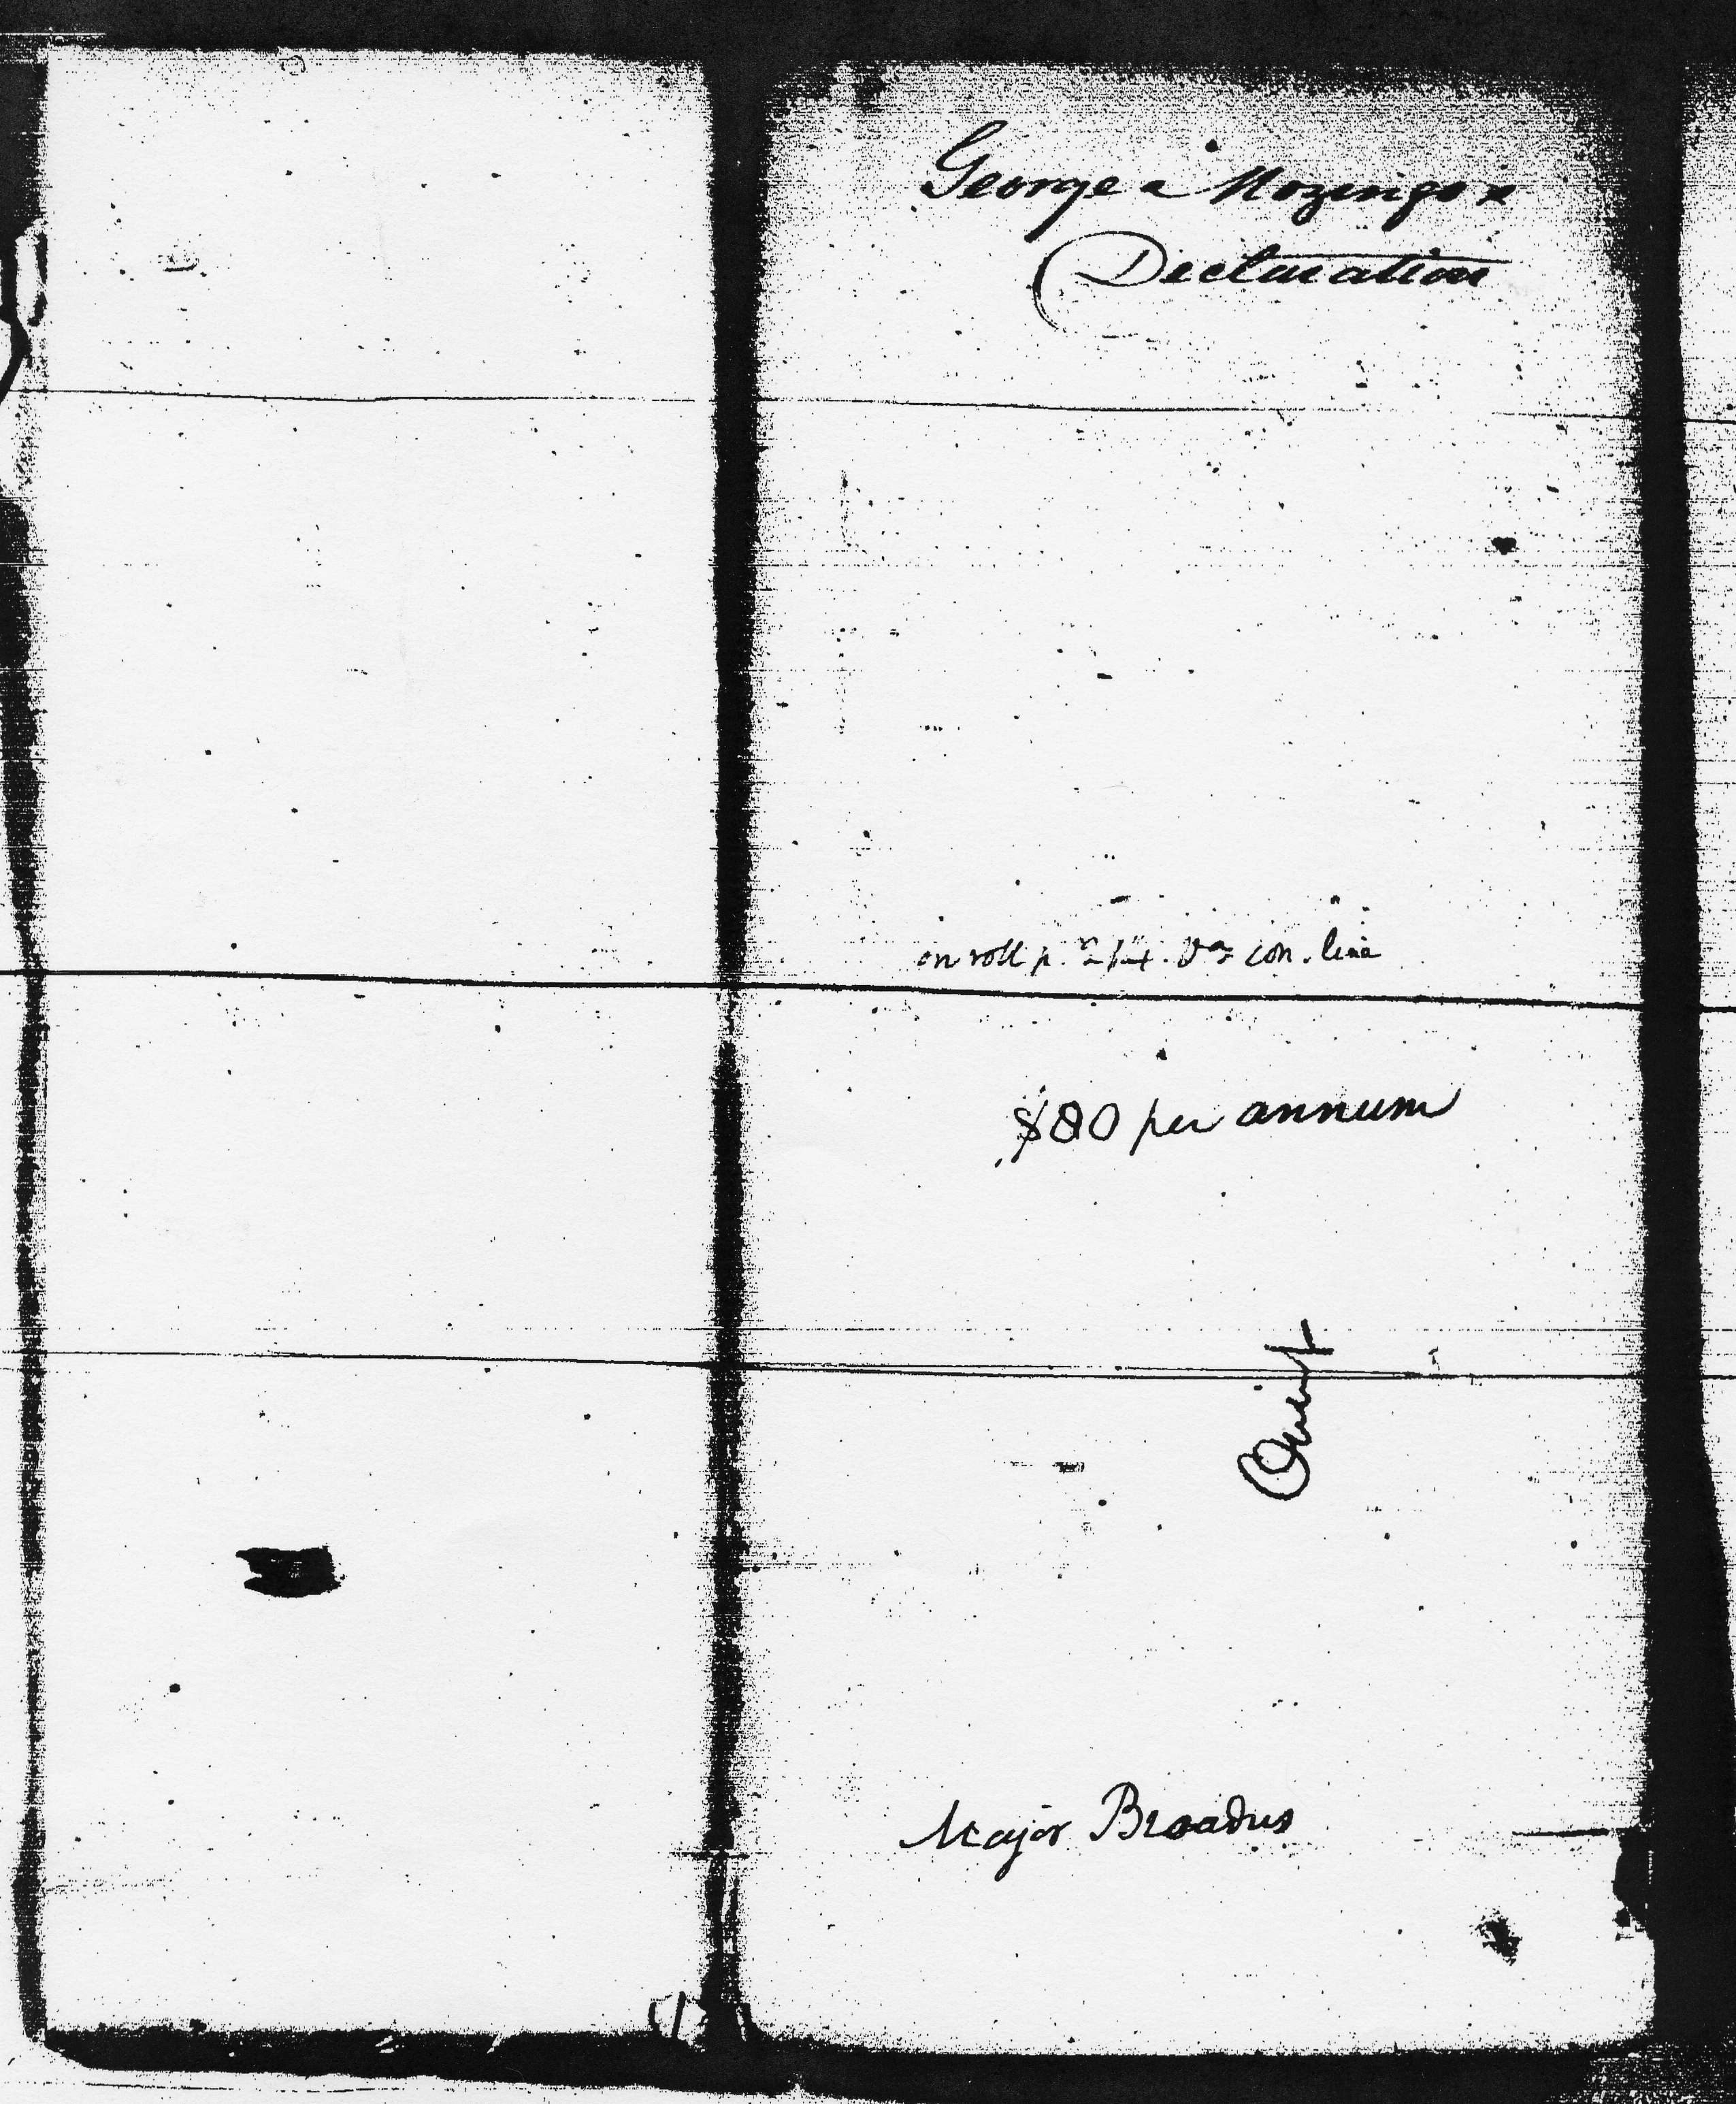 George a Mozingo x
Declaration
on roll p. 214. Va con. line
$80 per annum
Major Broadus